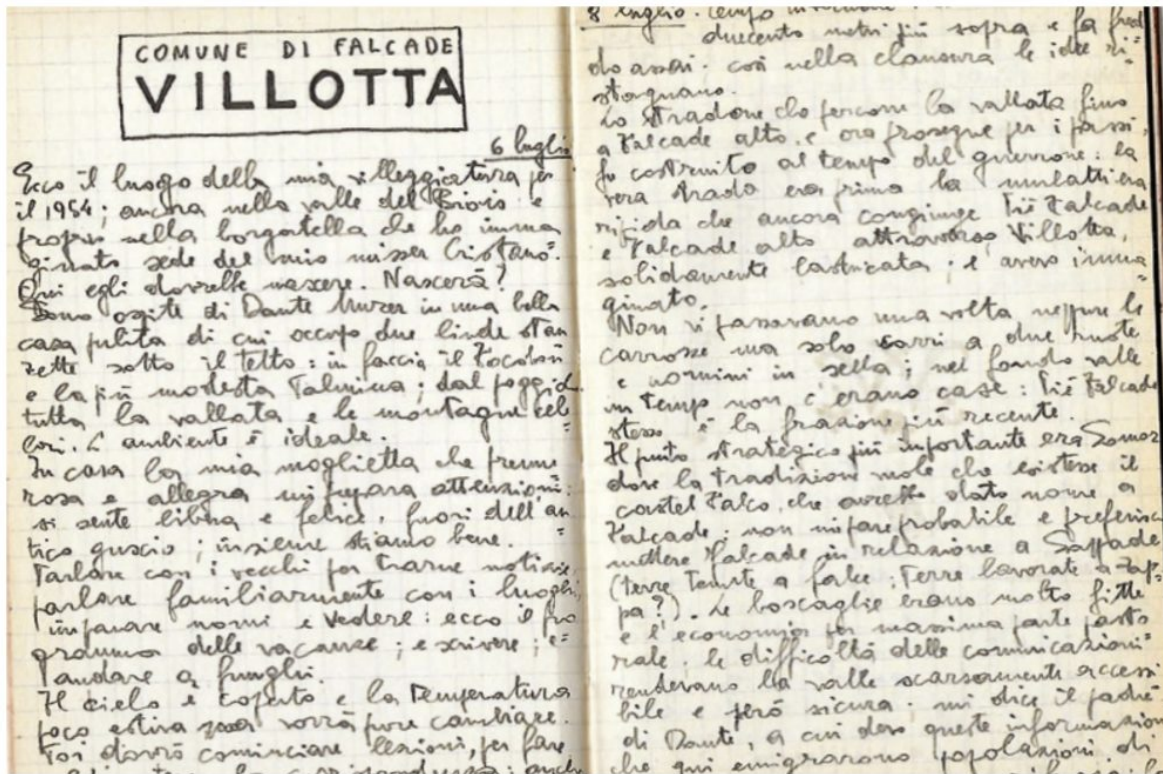 COMUNE DI FALCADE
VILLOTTA
6 luglio
Ecco il luogo della mia villeggiatura per
il 1954; ancora nella valle del Biois e
proprio nella borgatella che ho imma
ginato sede del mio misser Cristano.
Qui egli dovrebbe nascere. Nascerà?
Sono ospite di Dante Murer in una bella
casa pulita di cui occupo due linde stan
zette sotto il tetto: in faccia il Focobon
e la più modesta Palmina; dal poggiol
tutta la vallata e le montagne cele
bri. L'ambiente è ideale.
In casa la mia moglietta che freme
rosa e allegra mi prepara attenzioni:
si sente libera e felice, fuori dell'an
tico guscio; insieme stiamo bene.
Parlare con i vecchi per trarne notizie,
parlare familiarmente con i luoghi,
imparare nomi e vedere: ecco il pro
gramma delle vacanze; e scrivere; e
andare a funghi.
Il cielo è coperto e la temperatura
poco estiva vorrà pure cambiare.
Poi dovrò cominciare lezioni, per fare
8 luglio. tempo
duecento metri più sopra e fa fred
do assai. così nella clausura le idee ri=
stagnano.
Lo stradone che percorre la vallata fino
a Falcade alto, e ora prosegue per i passi,
fu costruito al tempo del guerrone: la
vera strada era prima la mulattiera
ripida che ancora congiunge Piè Falcade
e Falcade alto attraverso Villotta,
solidamente lastricata; l'avevo imma=
ginato.
Non vi passavano una volta neppure le
carrozze ma solo carri a due ruote
e uomini in sella; nel fondo valle
un tempo non c'erano case: Piè Falcade
stesso è la frazione più recente.
Il punto strategico più importante era Somor
dove la tradizione vuole che esistesse il
castel Falco, che avrebbe dato nome a
Falcade; non mi pare probabile e preferisco
mettere Falcade in relazione a Sappade
(terre tenute a falce; terre lavorate a zap=
pa?). Le boscaglie erano molto fitte
e l'economia per massima parte pasto
rale; le difficoltà delle comunicazioni
rendevano la valle scarsamente accessi
bile e però sicura. mi dice il padre
di Dante, a cui devo queste informazioni
che qui emigrarono popolazioni di